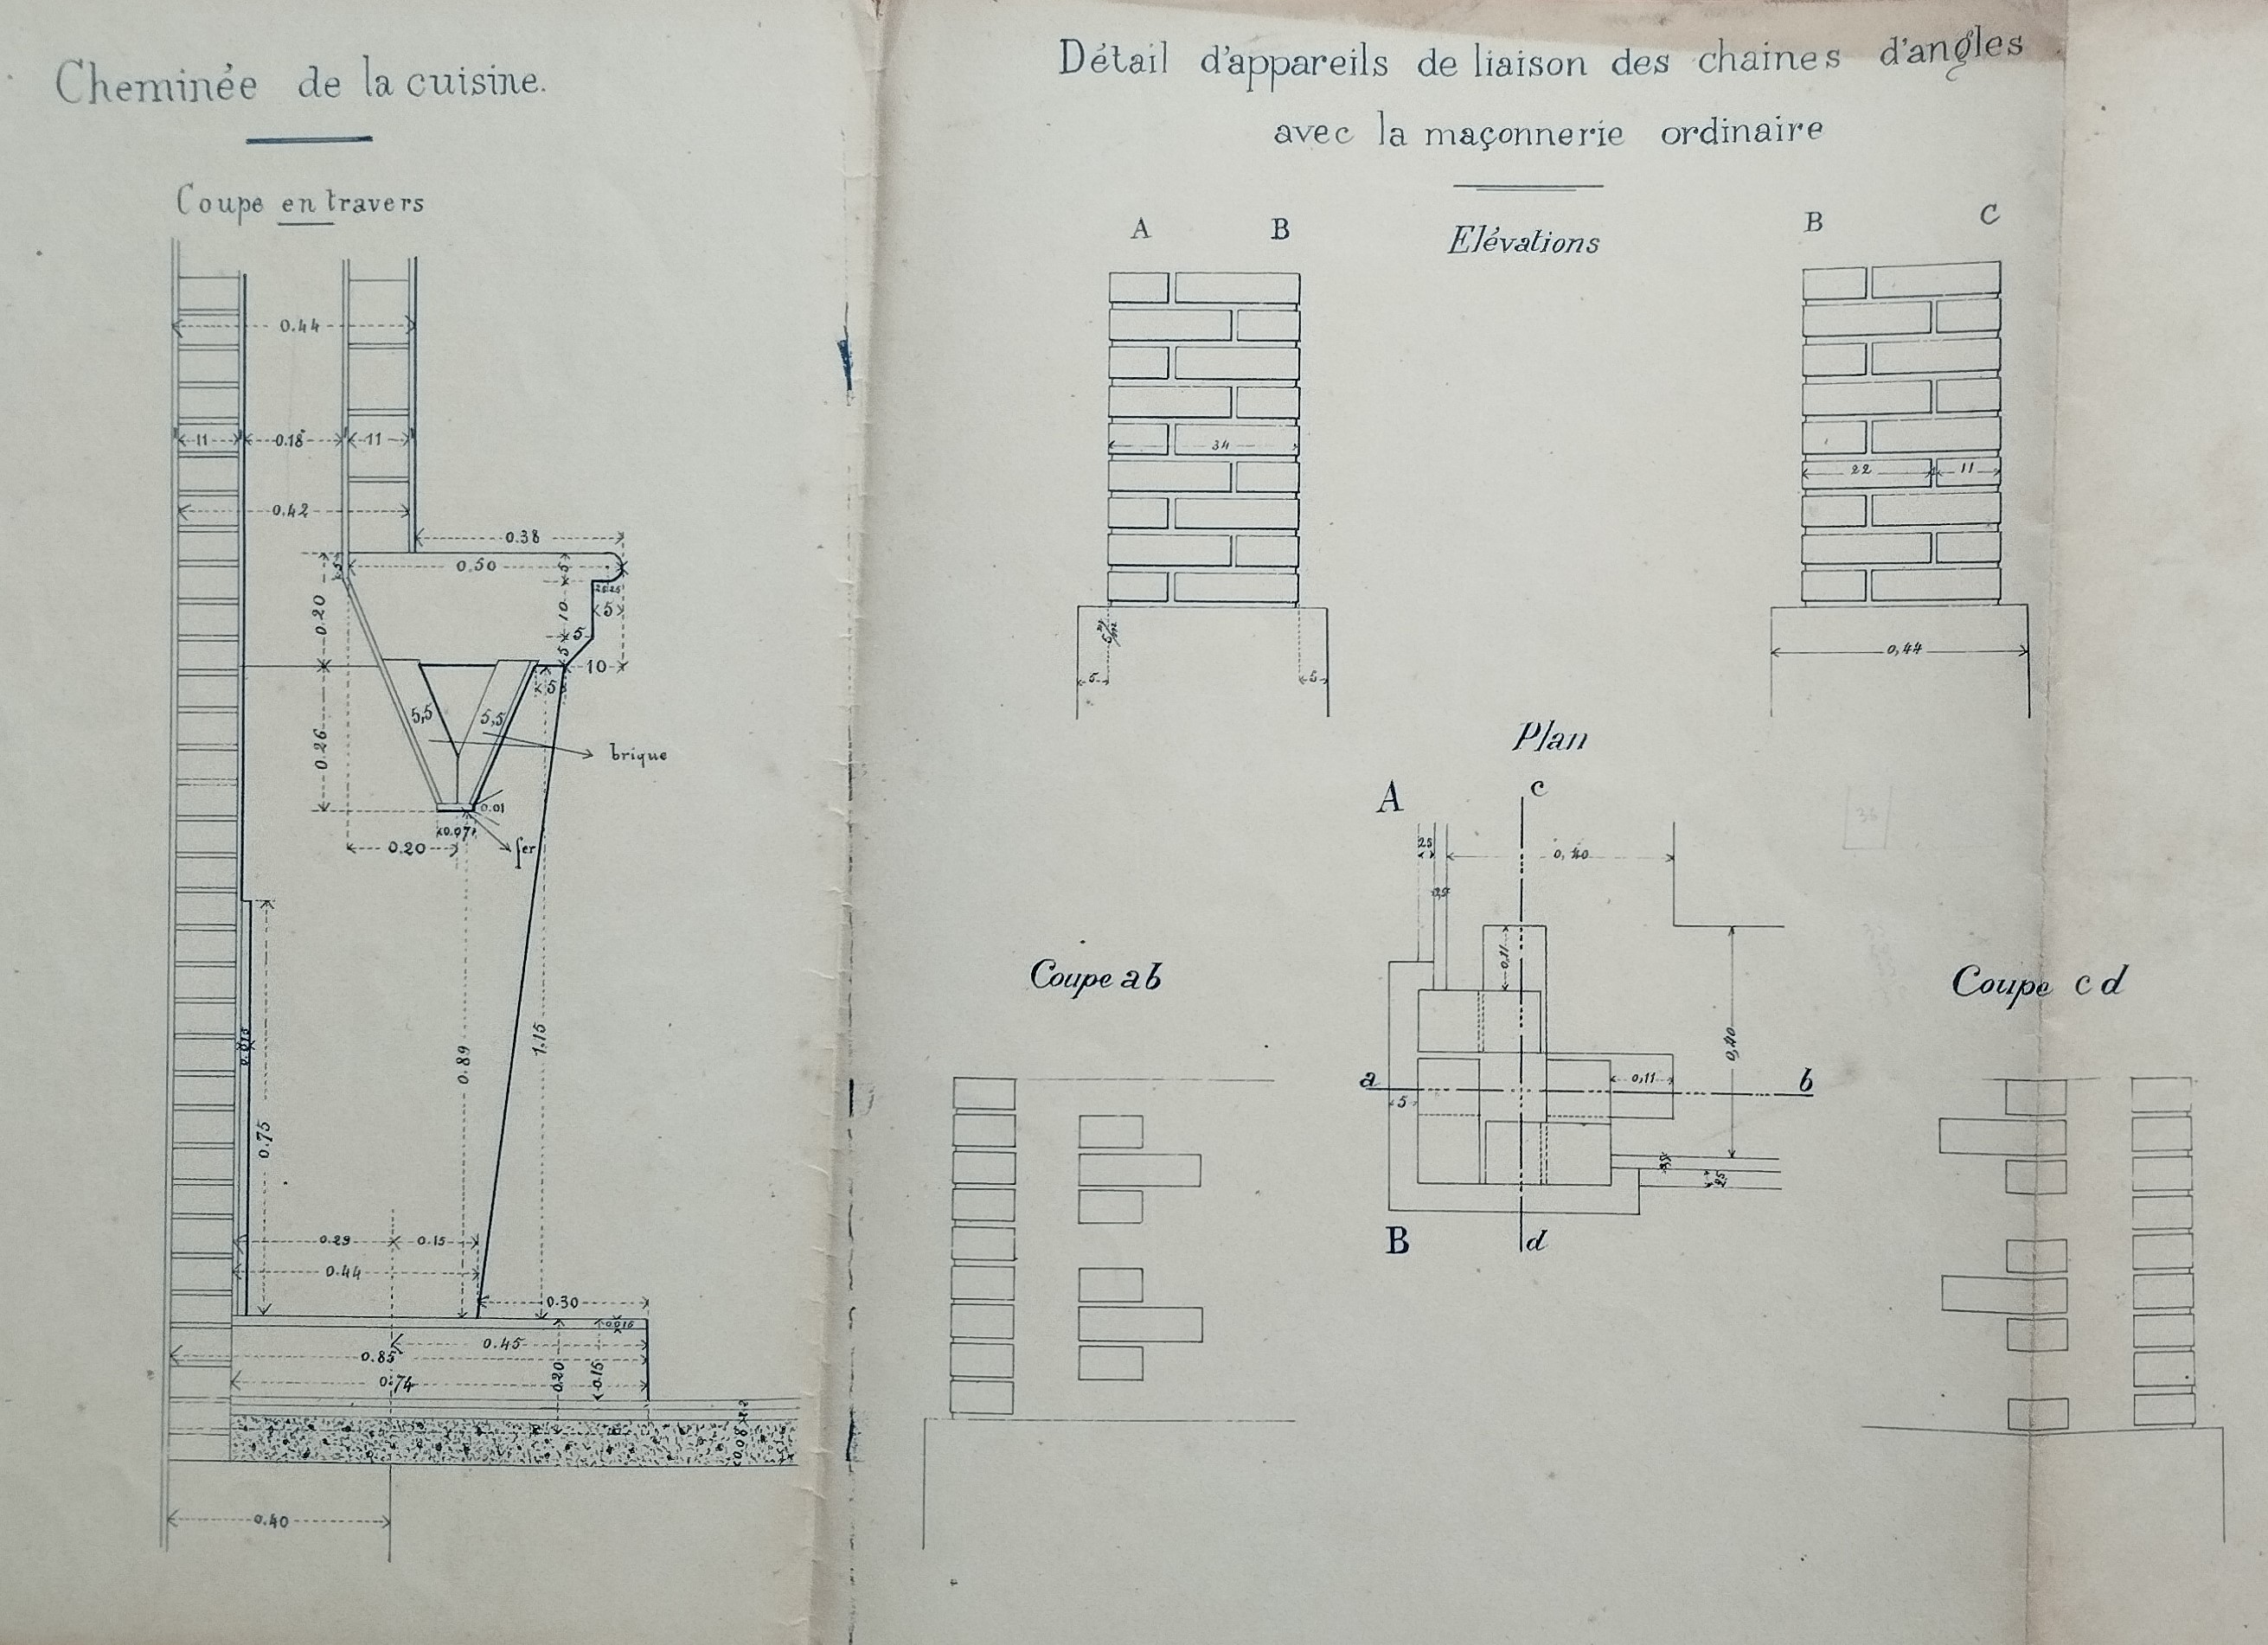 Cheminée de la cuisine.
Coupe en travers
0.44
11 0.18 11
0.42
0.38
0,50
5
5
0.20
10
5
5
5
10
5
5,5 5,5
0.26
brique
0.01
0.07
0.20
fer
0.015
0.75
0.89
1,15
0.29 0.15
0.44
0.30
0.015
0.45
0.85
0.74
0.20
0.15
0.08
0.40
Détail d'appareils de liaison des chaines d'angles
avec la maçonnerie ordinaire
Elévations
A B
B C
34
22 11
5
5
0,44
Plan
A
c
25
0,40
0,11
0,40
a
b
5
0,11
25
B
d
Coupe ab
Coupe cd